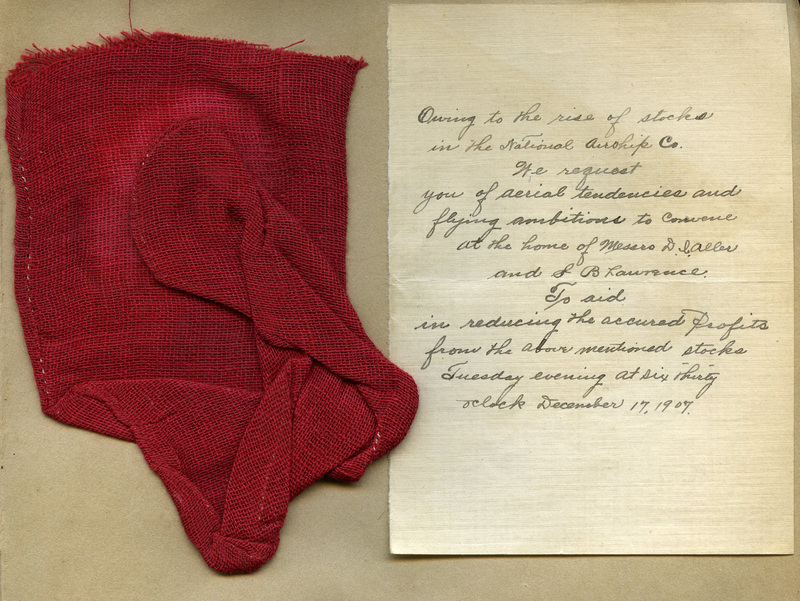 Owing to the rise of stocks
in the National Airship Co.
We request
you of aerial tendencies and
flying ambitions to convene
at the home of Messrs D. I. Aller
and S B Lawrence.
To aid
in reducing the accured Profits
from the above mentioned stocks
Tuesday evening at six thirty
oclock December 17, 1907.